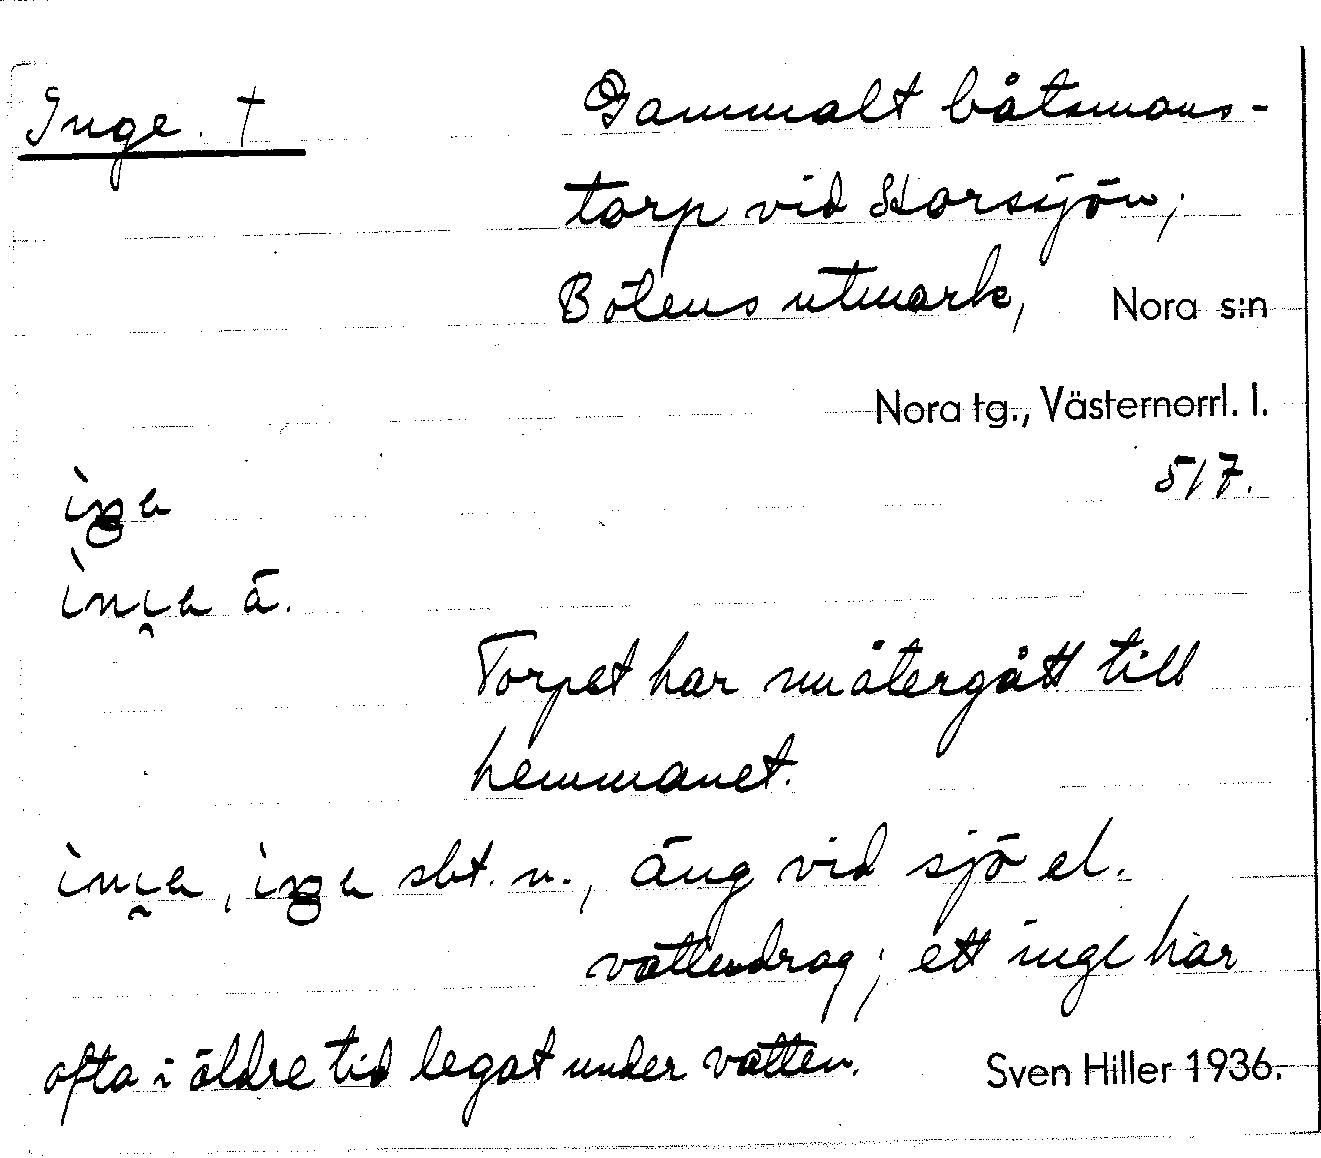 Inge. †
Gammalt båtsmans-
torp vid Storsjön,
Bölens utmark, Nora s:n
Nora tg., Västernorrl. l.
517.
ä.
Torpet har nu återgått till
hemmanet.
sbt. n., äng vid sjö el.
vattendrag; ett inge har
ofta i äldre tid legat under vatten.
Sven Hiller 1936.